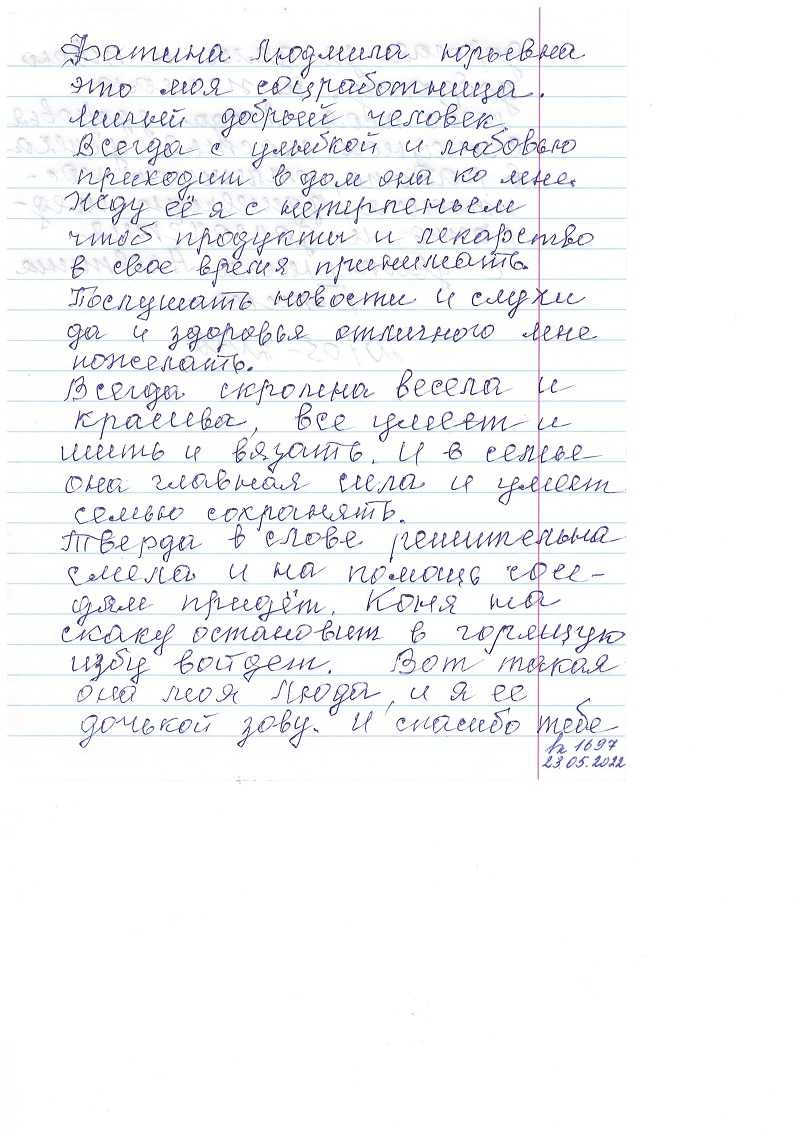 Фатина Людмила юрьевна
это моя соцработница.
милый добрый человек
Всегда с улыбкой и любовью
приходит в дом она ко мне.
Жду её я с нетерпеньем
чтоб продукты и лекарство
в свое время принимать.
Послушать новости и слухи
да и здоровья отличного мне
пожелать.
Всегда скромна весела и
красива, все умеет и
шить и вязать. И в семье
она главная сила и умеет
семью сохранять.
Тверда в слове решительна
смела и на помощь сосе-
дям придёт. Коня на
скаку остановит в горящую
избу войдет. Вот такая
она моя Люда, и я ее
дочькой зову. И спасибо тебе
вх 1697
23 05.2022